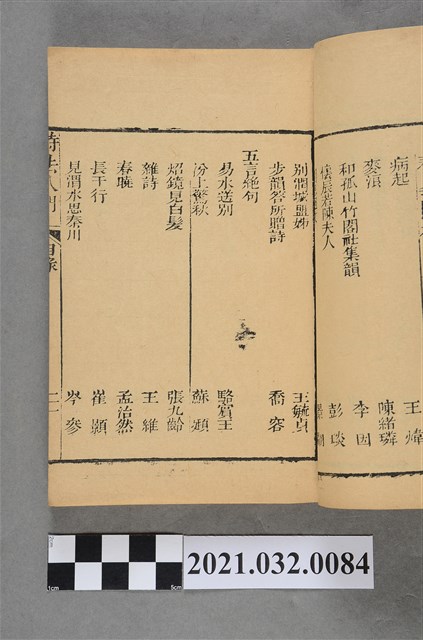 病起 王煒
麥浪 陳結璘
和孤山竹閣社集韻 李因
懷晨若陳夫人 彭琰
別澗塽盟姊 王毓貞
步韻答所贈詩 喬容
五言絕句
易水送別 駱賓王
汾上驚秋 蘇頲
炤鏡見白髮 張九齡
雜詩 王維
春曉 孟浩然
長干行 崔顥
見渭水思秦川 岑參
詩法入門 目錄 二一
1cm 5cm
2021.032.0084